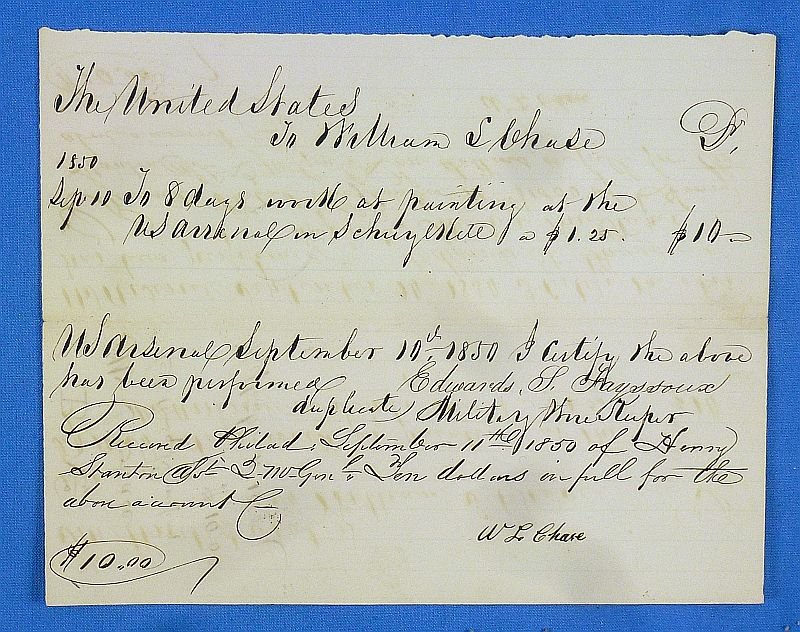 The United States
To William L Chase Dr,
1850
Sep 10 To 8 days work at painting at the
US Arsenal in Schuylkile a $1.25. $10—
US Arsenal September 10th, 1850 I certify the above
has been performed Edwards. S. Fayssoux
duplicate Military Store Keeper
Received Philad; September 11th 1850 of Henry
Stanton Asst Q-M-Genl. Ten dollars in full for the
above account
W L Chase
$10.00